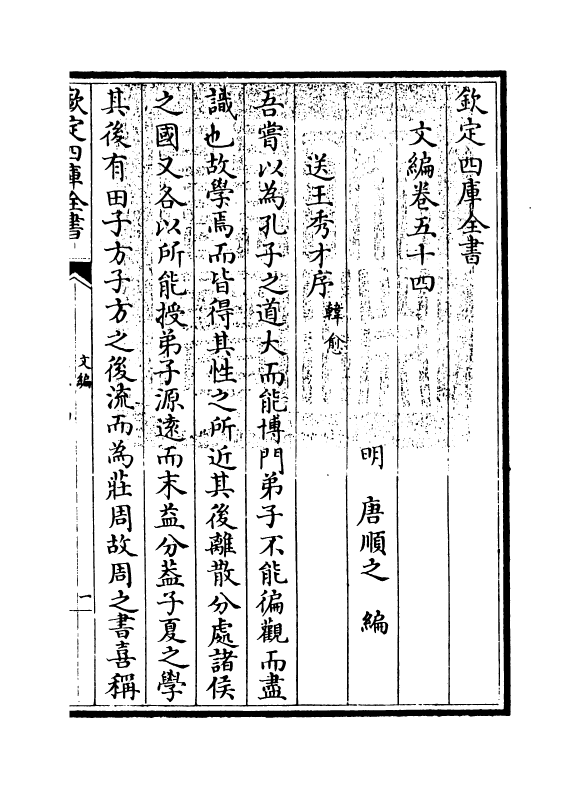 欽定四庫全書
文編卷五十四
明 唐順之 編
送王秀才序 韓愈
吾嘗以為孔子之道大而能博門弟子不能徧觀而盡
識也故學焉而皆得其性之所近其後離散分處諸侯
之國又各以所能授弟子源逺而末益分葢子夏之學
其後有田子方子方之後流而為莊周故周之書喜稱
欽定四庫全書
文編
一